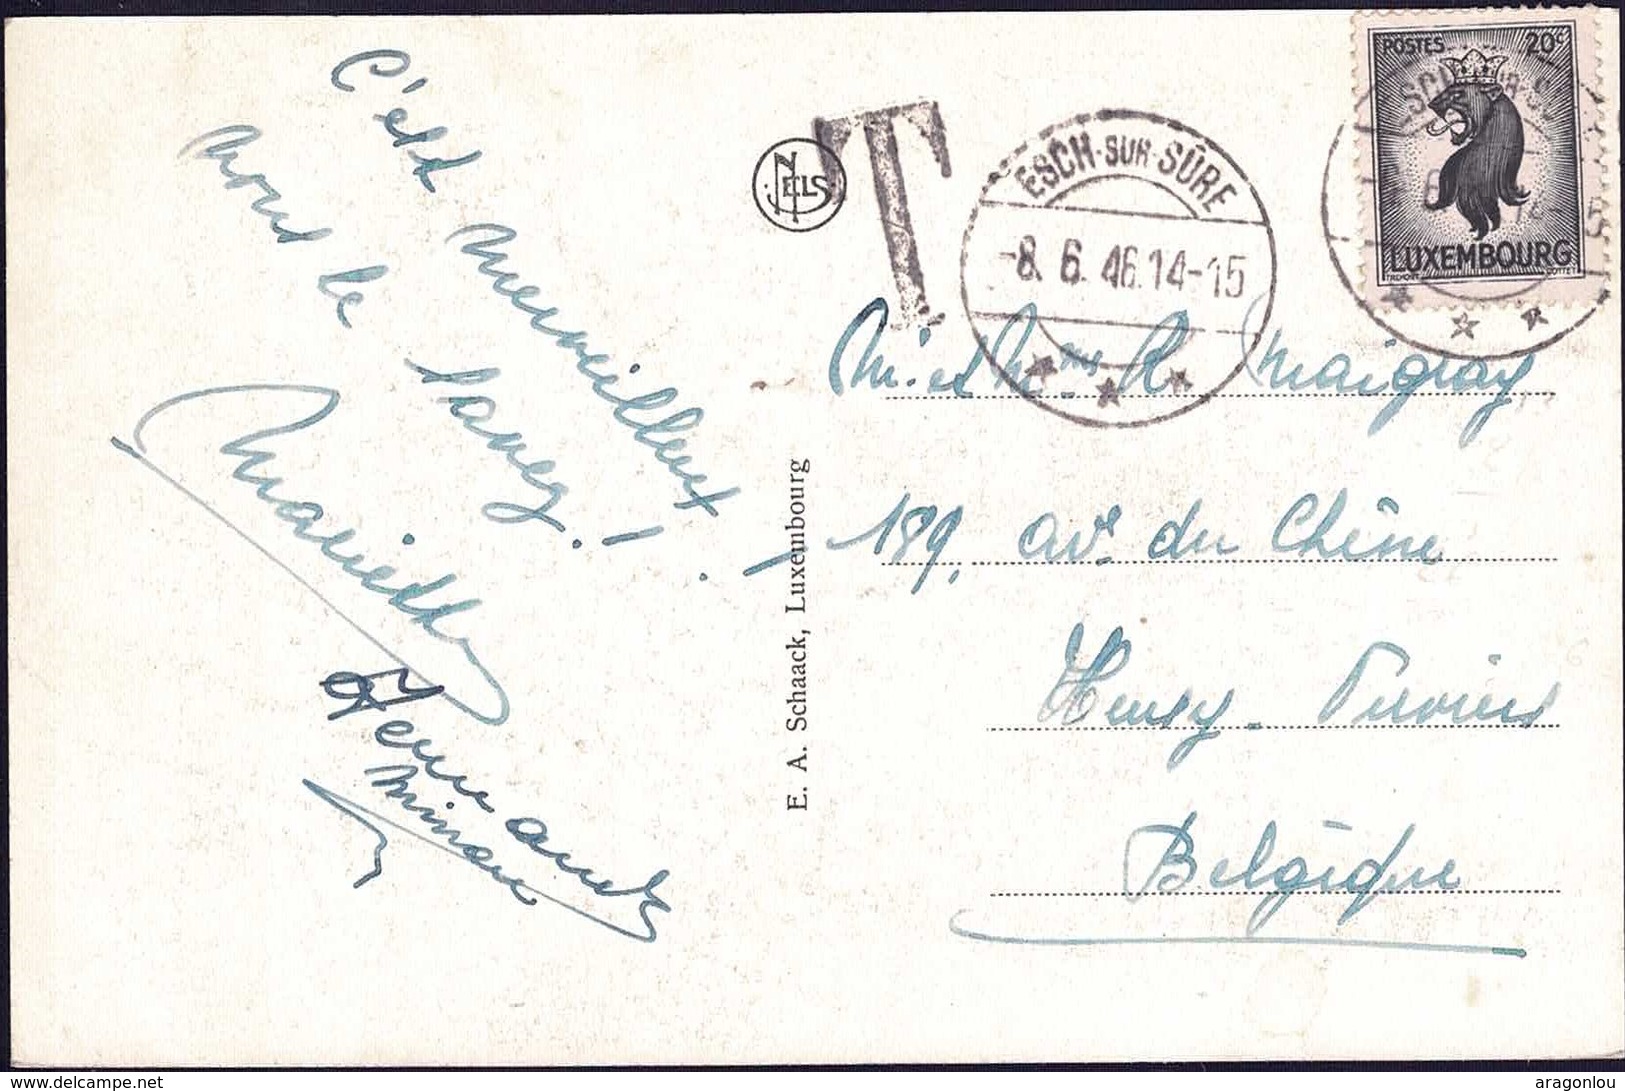 C'est merveilleux !
vous le savez !
Mariette
Fernande
E. A. Schaack, Luxembourg
NELS
T
ESCH-SUR-SÛRE
-8. 6. 46. 14-15
POSTES 20c
LUXEMBOURG
M. et Mme R Maigray
189, av. du Chêne
Heusy - Verviers
Belgique
www.delcampe.net
aragonlou